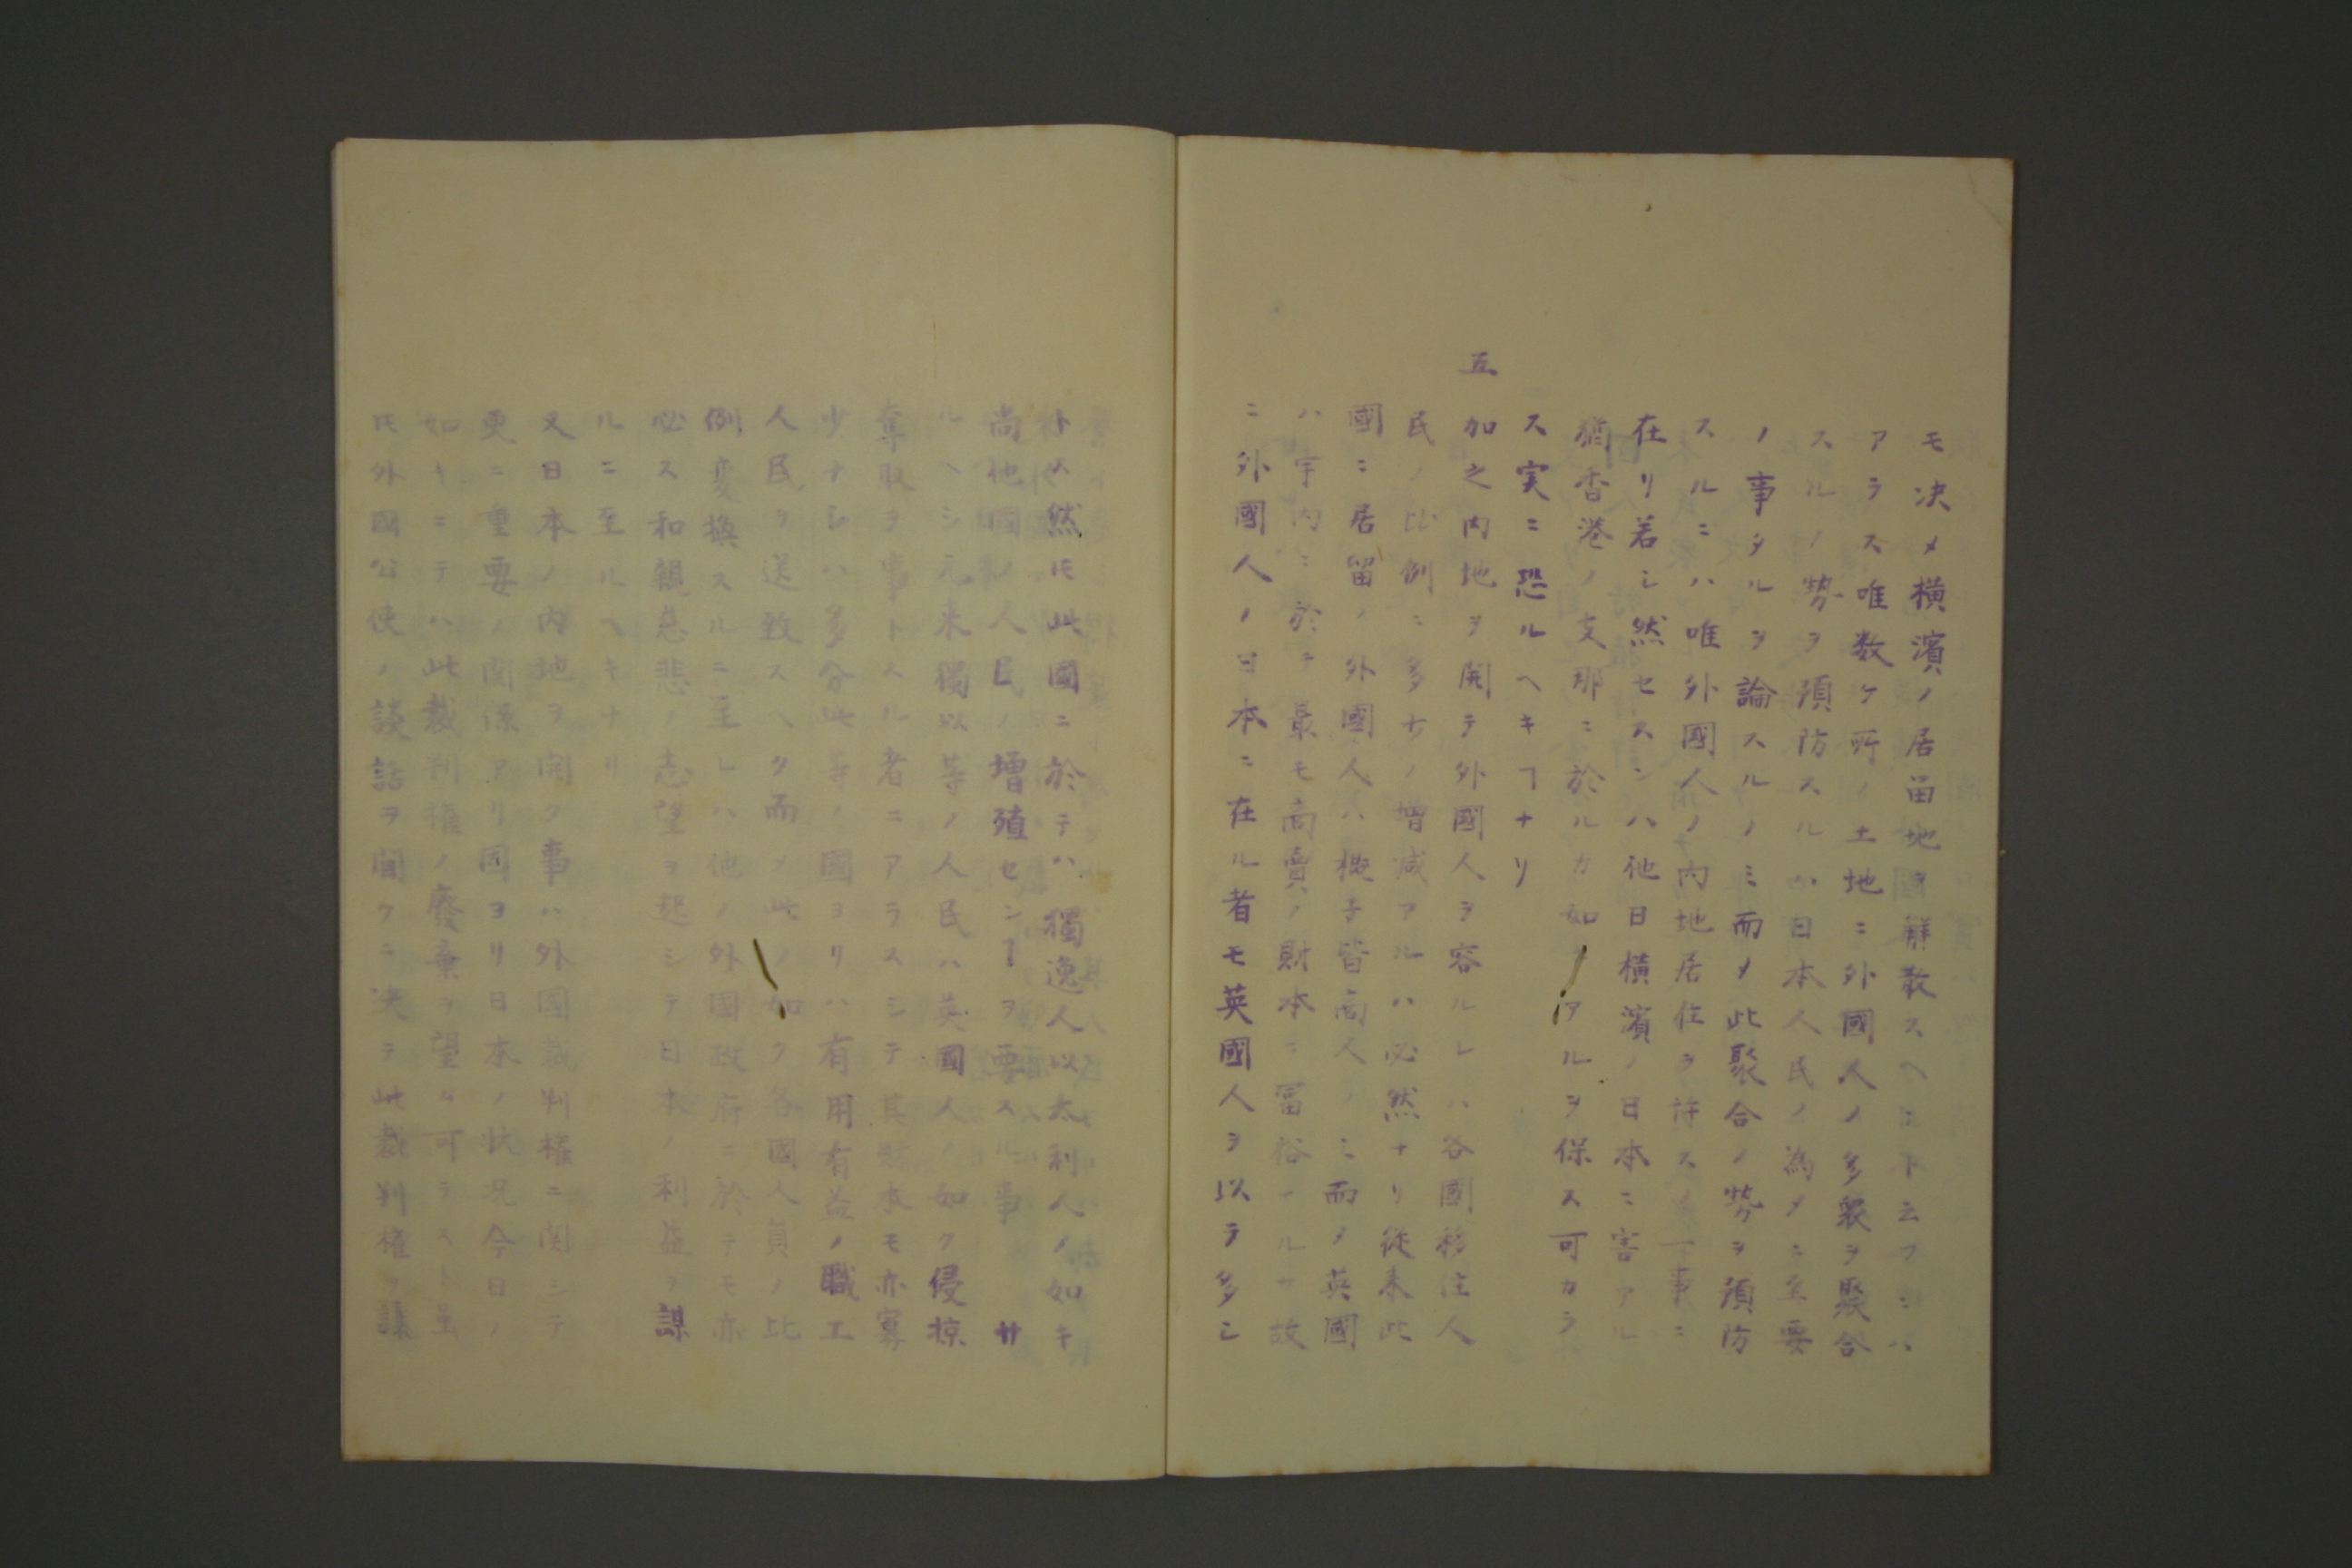 モ决メ横濱ノ居留地ヲ解散スヘシト云フニハ
アラス唯数ケ所ノ土地ニ外國人ノ多衆ヲ聚合
スルノ勢ヲ預防スルハ日本人民ノ為メニ至要
ノ事タルヲ論スルノミ而〆此聚合ノ勢ヲ預防
スルニハ唯外國人ノ内地居住ヲ許スノ一事ニ
在リ若シ然セスンハ他日横濱ノ日本ニ害アル
猶香港ノ支那ニ於ルカ如キアルヲ保ス可カラ
ス実ニ恐ルヘキヿナリ
五
加之内地ヲ開テ外國人ヲ容ルレハ各國移住人
民ノ比例ニ多少ノ増減アルハ必然ナリ従来此
國ニ居留ノ外國人ハ概子皆商人ノミ而〆英國
ハ宇内ニ於テ最モ商賣ノ財本ニ富裕ナルヿ故
ニ外國人ノ日本ニ在ル者モ英國人ヲ以テ多シ
ト〆然𪜈此國ニ於テハ獨逸人以太利人ノ如キ
尚他國ノ人民ノ増殖センヿヲ要スル事サ
ルヘシ元来獨以等ノ人民ハ英國人ノ如ク侵掠
奪取ヲ事トスル者ニアラスシテ其財本モ亦寡
少ナレハ多分此等ノ國ヨリハ有用有益ノ職工
人民ヲ送致スヘク而〆此ノ如ク各國人員ノ比
例変換スルニ至レハ他ノ外國政府ニ於テモ亦
必ス和親慈悲ノ志望ヲ起シテ日本ノ利益ヲ謀
ルニ至ルヘキナリ
又日本ノ内地ヲ開ク事ハ外國裁判権ニ関シテ
更ニ重要ノ関係アリ固ヨリ日本ノ状况今日ノ
如キニテハ此裁判権ノ廢棄ヲ望ム可ラスト雖
𪜈外國公使ノ談話ヲ聞クニ决テ此裁判権ヲ議